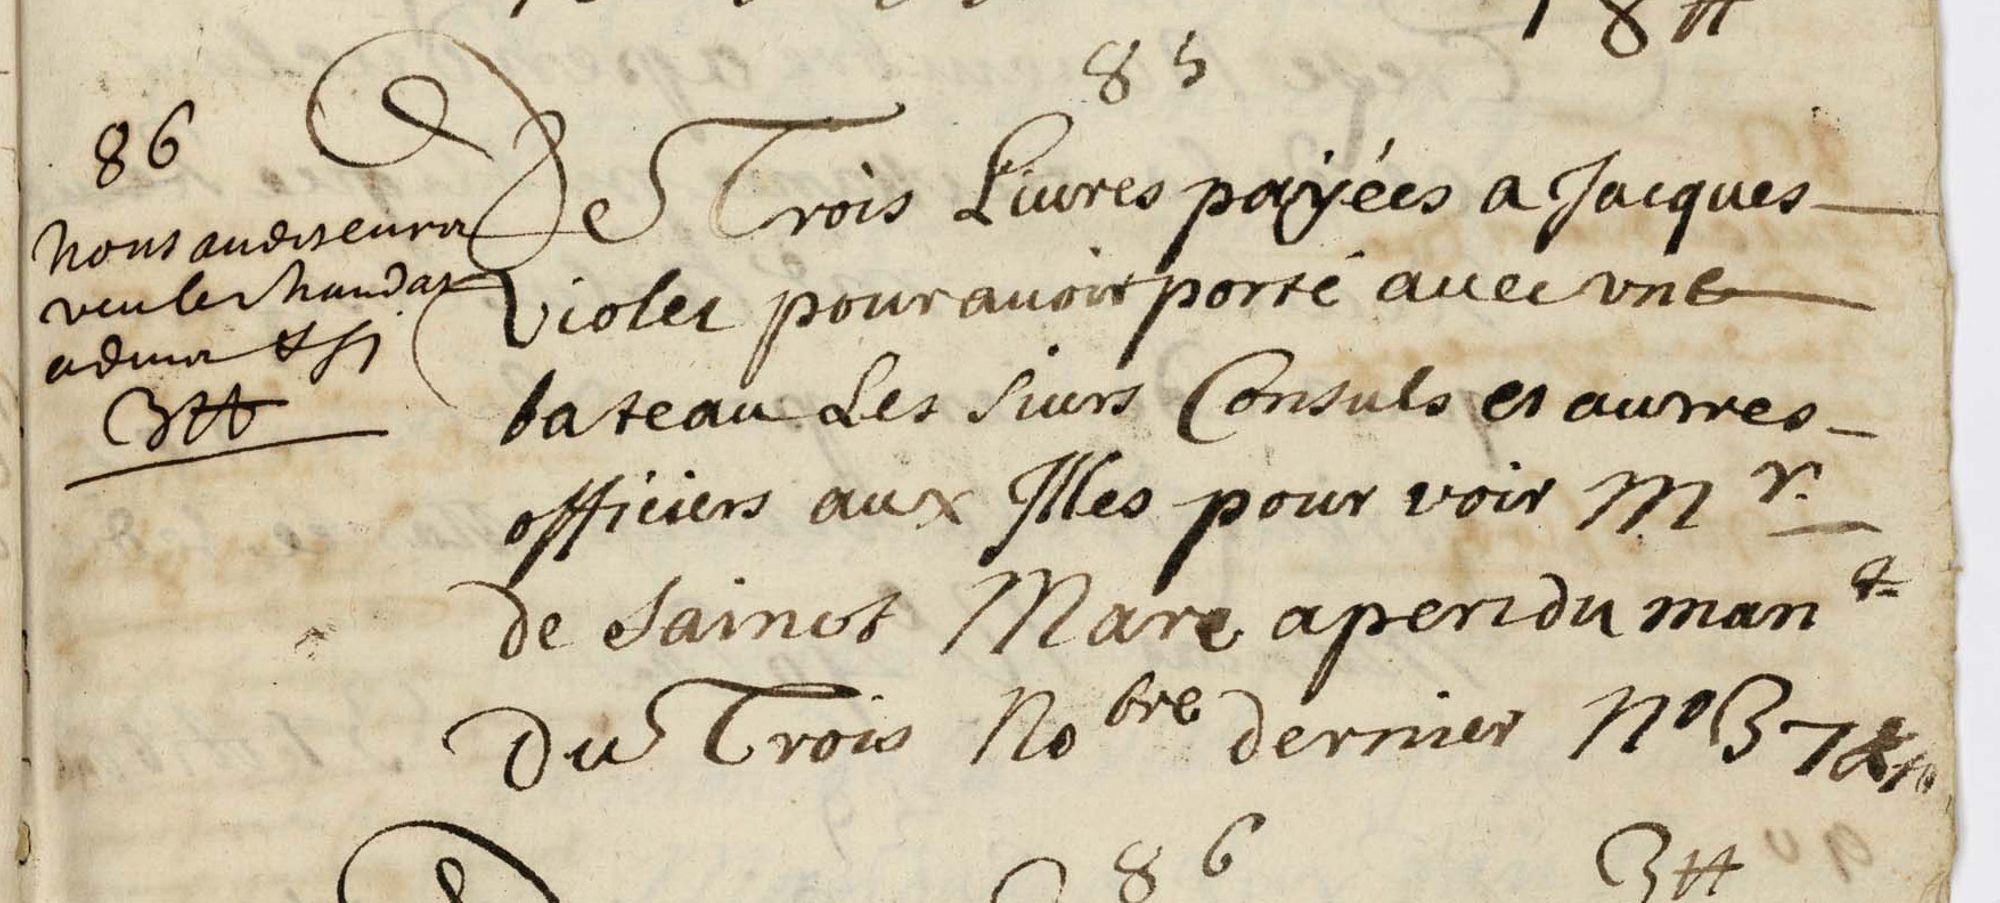 8 ₶
85
86
De Trois Liures payées a Jacques
Violet pour auoir porté auec vne
bateau Les sieurs Consuls et autres
officiers aux Illes pour voir Mr.
de Sainct Marc apert du man t
Du Trois No bre dernier No 37
Nous auditeurs
veu le mandat
admis
3 ₶
86
3 ₶